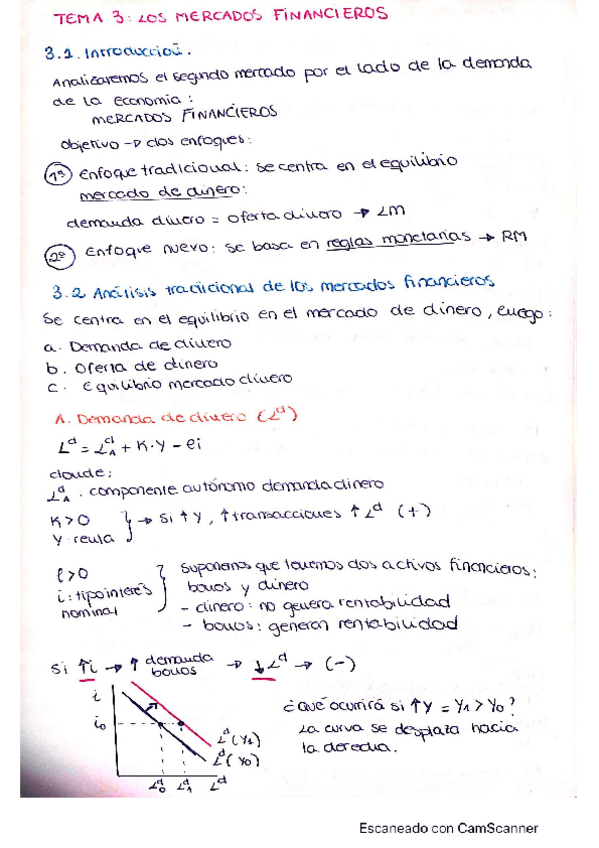 TEMA 3: LOS MERCADOS FINANCIEROS
3.1. Introducción.
Analizaremos el segundo mercado por el lado de la demanda
de la economía:
MERCADOS FINANCIEROS
objetivo → dos enfoques:
1º Enfoque tradicional: se centra en el equilibrio
mercado de dinero:
demanda dinero = oferta dinero → LM
2º Enfoque nuevo: se basa en reglas monetarias → RM
3.2 Análisis tradicional de los mercados financieros
Se centra en el equilibrio en el mercado de dinero, luego:
a. Demanda de dinero
b. Oferta de dinero
c. Equilibrio mercado dinero
A. Demanda de dinero (Lᵈ)
Lᵈ = Lᵈ_A + K·Y - ei
donde:
Lᵈ_A . componente autónomo demanda dinero
K>0 } → si ↑Y, ↑transacciones ↑Lᵈ (+)
Y renta
e>0 } Suponemos que tenemos dos activos financieros:
i: tipo interés bonos y dinero
nominal - dinero: no genera rentabilidad
- bonos: generan rentabilidad
Si ↑i → ↑ demanda bonos → ↓Lᵈ → (-)
i
¿Qué ocurrirá si ↑Y = Y₁ > Y₀?
i₀
La curva se desplaza hacia
la derecha.
Lᵈ(Y₁)
Lᵈ(Y₀)
Lᵈ₀ Lᵈ₁ Lᵈ
Escaneado con CamScanner